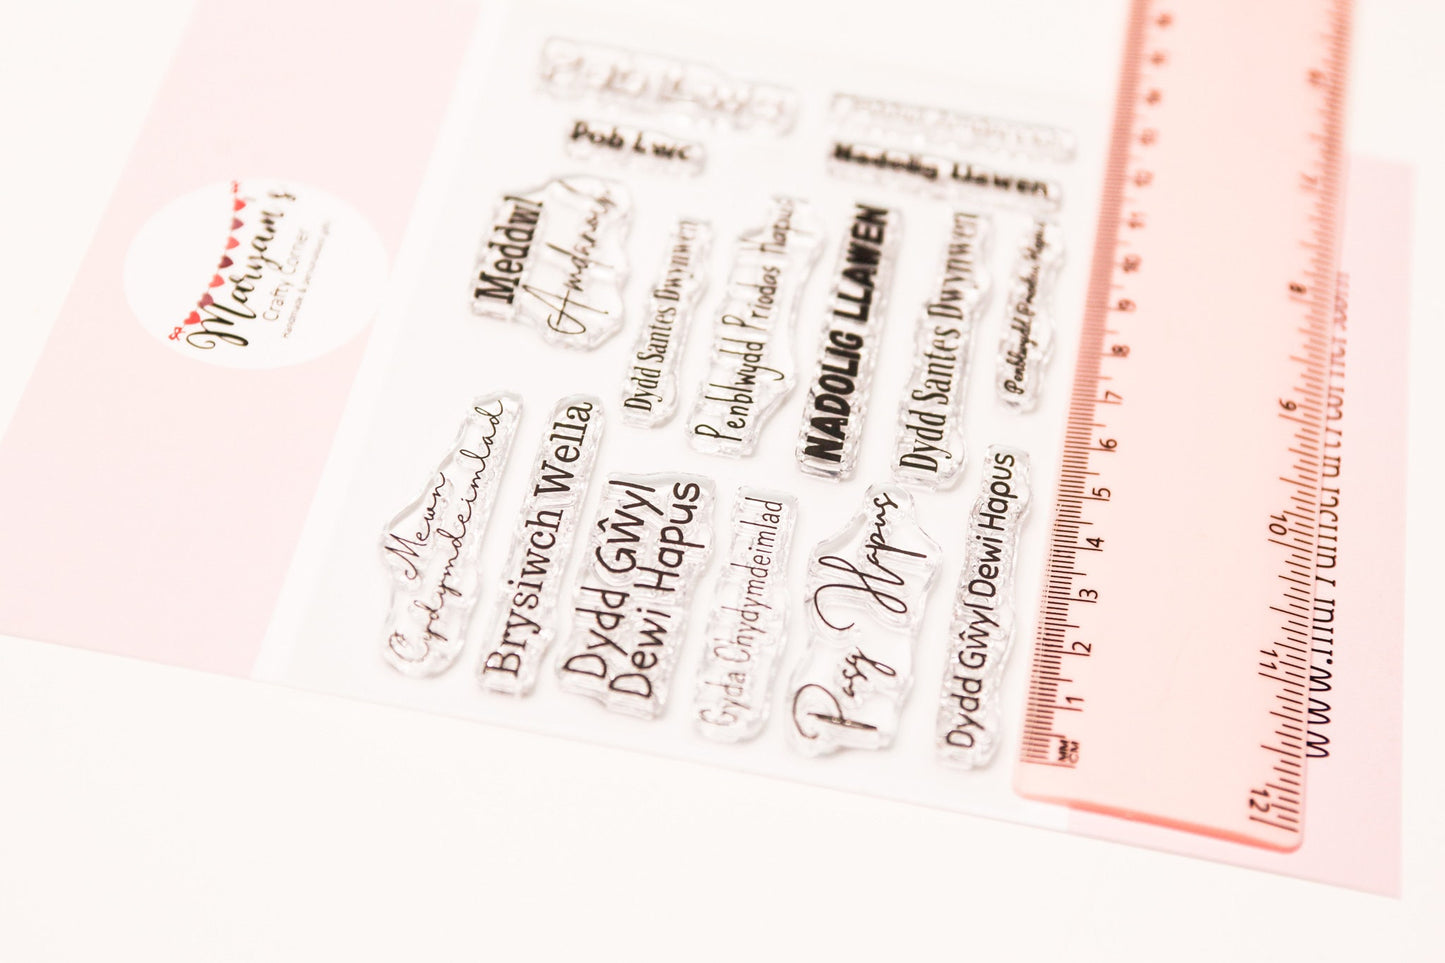 Maryam's
Crafty Corner
Pob Lwc
Nadolig Llawen
Meddwl
Amdanoch
Dydd Santes Dwynwen
Penblwydd Priodas Hapus
NADOLIG LLAWEN
Dydd Santes Dwynwen
Penblwydd Priodas Hapus
Mewn
Cydymdeimlad
Brysiwch Wella
Dydd Gŵyl
Dewi Hapus
Gyda Chydymdeimlad
Pasg Hapus
Dydd Gŵyl Dewi Hapus
MM
CM
1
2
3
4
5
6
7
8
9
10
11
12
8
9
10
11
12